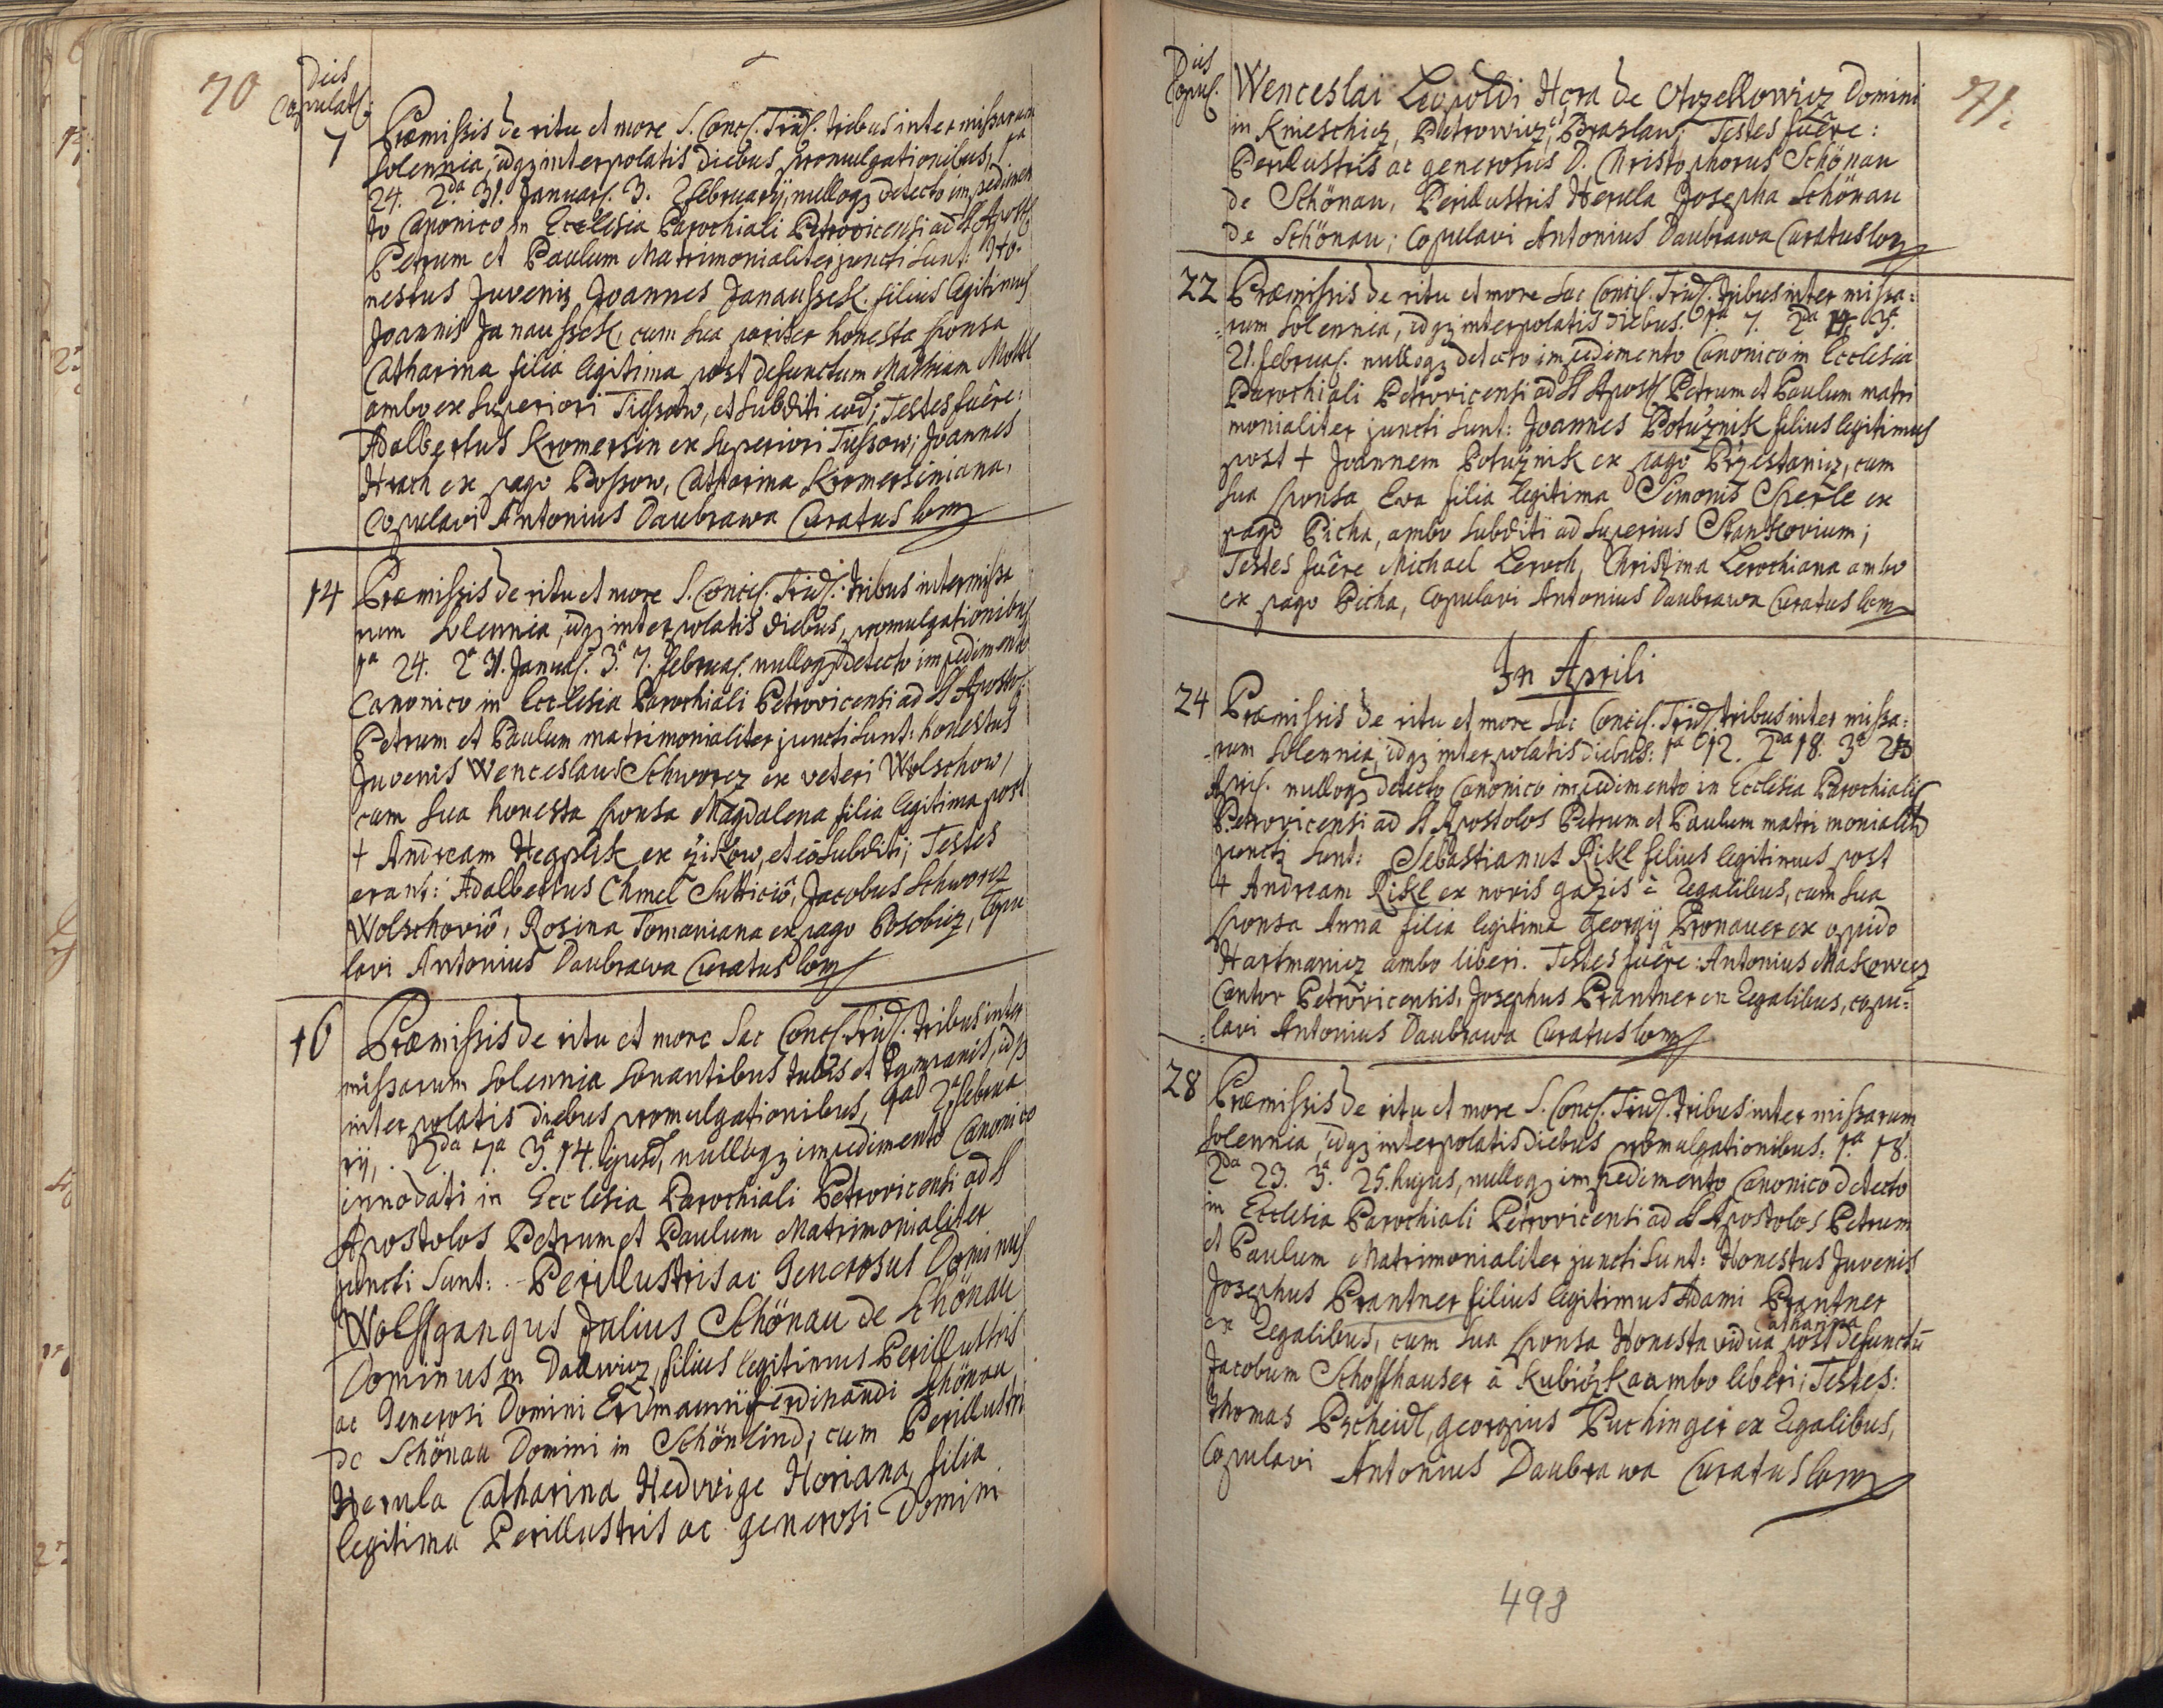 70
Dies
Copulat:
7 Præmissis de ritu et more S. Conc. Trid. tribus inter missarum
solennia, idqz interpolatis diebus promulgationibus, 1a
24. 2da 31. Januar. 3. 2 februarij, nulloqz detecto impedimen
to Canonico in Ecclesia Parochiali Petrovicensi ad SS Apost.
Petrum et Paulum Matrimonialiter juncti sunt: Ho-
nestus Juvenis Joannes Janaussek filius legitimus
Joannis Janaussek, cum sua pariter honesta sponsa
Catharina filia legitima post defunctum Mathiam Moltl
ambo ex superiori Tiessow, et subditi eod; Testes fuêre:
Adalbertus Kromersin ex superiori Tiessow; Joannes
Hrach ex pago Possow, Catharina Kromersiniana,
Copulavi Antonius Daubrawa Curatus loci
14 Præmissis de ritu et more S. Conci. Trid. tribus intermissa
rum solennia, idqz interpolatis diebus, promulgationibus
1a 24. 2a 31. Januar. 3a 7. februar. nulloqz detecto impedimento
Canonico in Ecclesia Parochiali Petrovicensi ad SS Aposto.
Petrum et Paulum matrimonialiter juncti sunt: honestus
Juvenis Wenceslaus Schworz ex veteri Wolschow,
cum sua honesta sponsa Magdalena filia legitima post
+ Andream Hegplik ex žikow, et eô subditi; Testes
erant: Adalbertus Chmel Sutticiô, Jacobus Schworz
Wolschoviô, Rosina Tomaniana ex pago Posobicz, Copu
lavi Antonius Daubrawa Curatus loci
16 Præmissis de ritu et more Sac Conc. Trid. tribus inter
missarum solennia sonantibus tubis et tympanis, idqz
interpolatis diebus promulgationibus, 1a 2a februa
rij, 2da 7a 3a 14. ejusd, nulloqz impedimento Canonico
innodati in Ecclesia Parochiali Petrovicensi ad SS
Apostolos Petrum et Paulum Matrimonialiter
juncti sunt: Perillustris ac Generosus Dominus
Wolffgangus Julius Schönau de Schönau
Dominus in Daawicz, filius legitimus Perillustris
ac Generosi Domini Erdmanni Ferdinandi Schönau
de Schönau Domini in Schönlind; cum Perillustri
Herula Catharina Hedwige Horiana, filia
legitima Perillustris ac generosi Domini
71.
Dies
Copul.
Wenceslai Leopoldi Hora de Otzellowicz Domini
in Knieschicz, Petrowicz, Braslaw; Testes fuêre:
Perillustris ac generosus D. Christophorus Schönau
de Schönau, Perillustris Herula Josepha Schönau
de Schönau; Copulavi Antonius Daubrawa Curatus loci
22 Præmissis de ritu et more Sac Conci. Trid. tribus inter missa-
rum solennia, idqz interpolatis diebus. 1a 7. 2da 14. 3a
21. februar. nulloqz detecto impedimento Canonico in Ecclesia
Parochiali Petrovicensi ad SS Apost. Petrum et Paulum matri
monialiter juncti sunt: Joannes Potužnik filius legitimus
post + Joannem Potužnik ex pago Pržestanicz, cum
sua sponsa Eva filia legitima Simonis Sperle ex
pago Picha, ambo subditi ad superius Stankovium;
Testes fuêre Michael Leroch, Christina Lerochiana ambo
ex pago Picha, Copulavi Antonius Daubrawa Curatus loci
In Aprili
24 Præmissis de ritu et more Sac Conci. Trid. tribus inter missa-
rum solennia, idqz interpolatis diebus: 1a 12. 2da 18. 3a 23
Apri. nulloqz detecto Canonico impedimento in Ecclesia Parochiali
Petrovicensi ad SS Apostolos Petrum et Paulum matrimonialit.
juncti sunt: Sebastianus Rikl filius legitimus post
+ Andream Rikl ex novis gazis è Regalibus, cum sua
sponsa Anna filia legitima Georgij Pronauer ex oppido
Hartmanicz ambo liberi. Testes fuêre: Antonius Makowecz
Cantor Petrovicensis, Josephus Prantner ex Regalibus, copu-
lavi Antonius Daubrawa Curatus loci
28 Præmissis de ritu et more S. Conc. Trid. tribus inter missarum
solennia, idqz interpolatis diebus promulgationibus: 1a 18.
2da 23. 3a 25. hujus, nulloqz impedimento Canonico detecto
in Ecclesia Parochiali Petrovicensi ad SS Apostolos Petrum
et Paulum Matrimonialiter juncti sunt: Honestus Juvenis
Josephus Prantner filius legitimus Adami Prantner
Catharina
ex Regalibus, cum sua sponsa Honesta vidua post defunctū
Jacobum Schoffhauser à Kubiczka ambo liberi; Testes:
Thomas Pscheidl, Georgius Puchinger ex Regalibus,
Copulavi Antonius Daubrawa Curatus loci
498